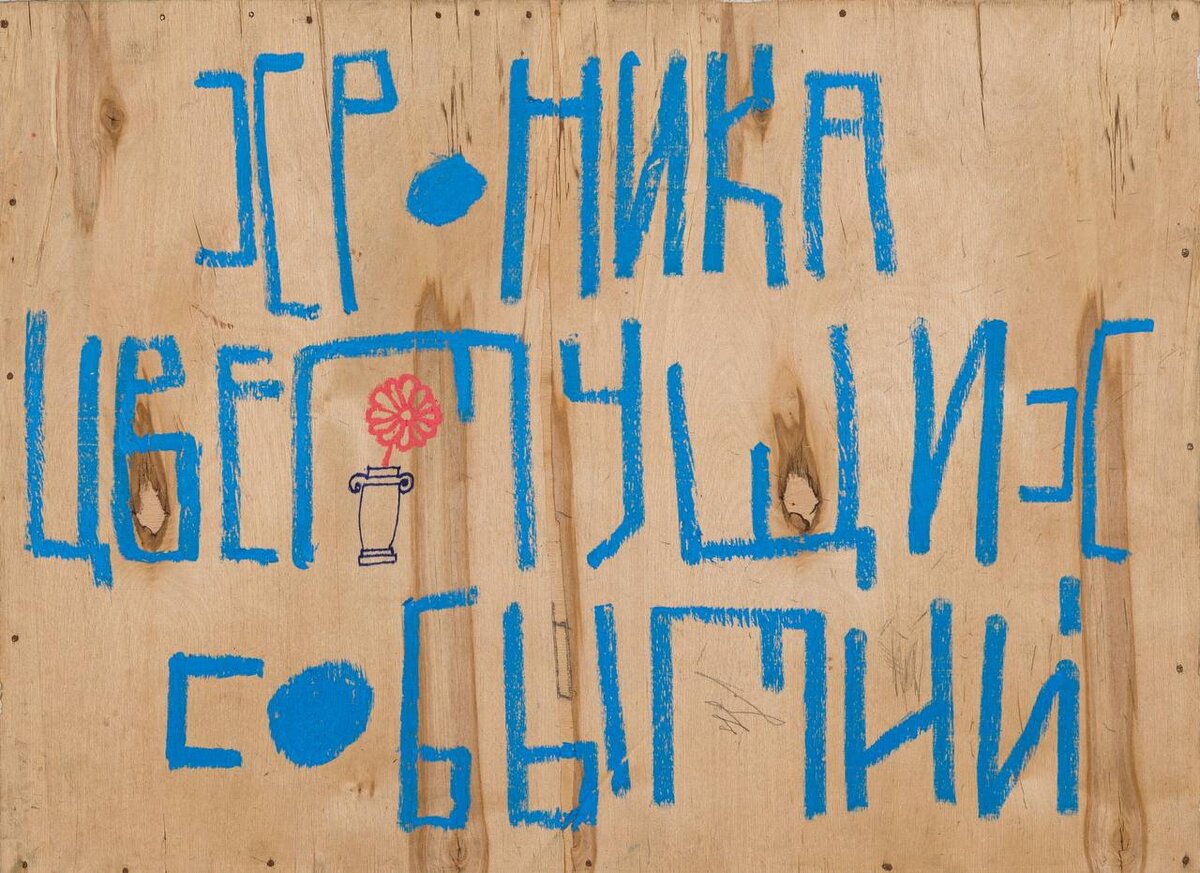 ХРОНИКА
ЦВЕТУЩИХ
СОБЫТИЙ